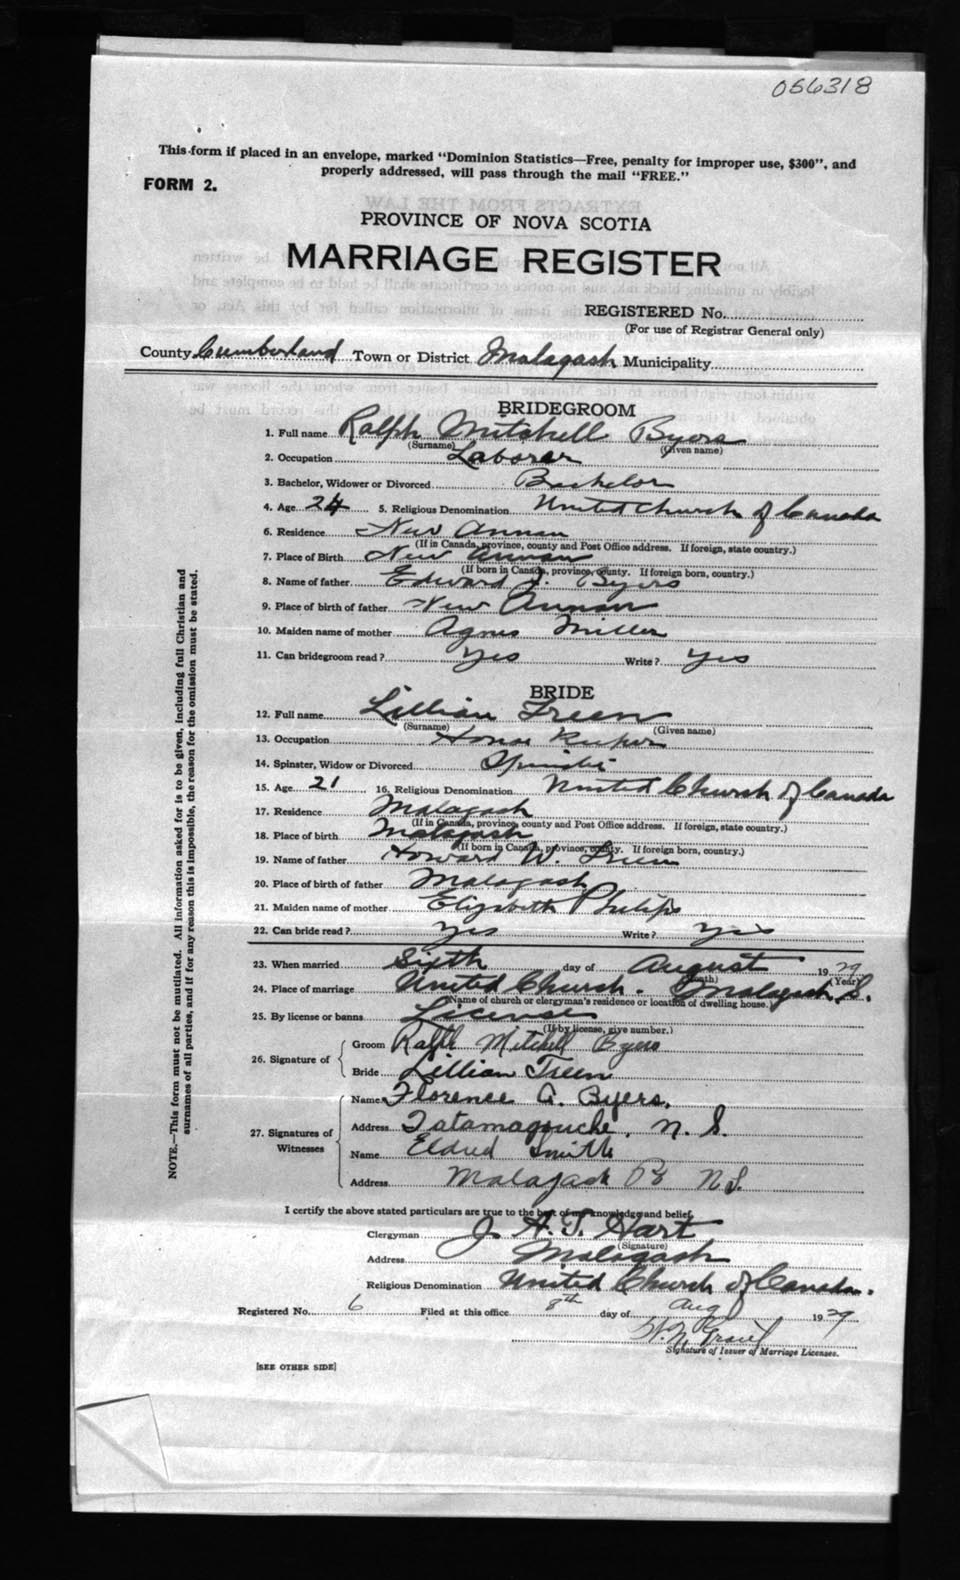 056318
This form if placed in an envelope, marked "Dominion Statistics—Free, penalty for improper use, $300", and
properly addressed, will pass through the mail "FREE."
FORM 2.
PROVINCE OF NOVA SCOTIA
MARRIAGE REGISTER
REGISTERED No.
(For use of Registrar General only)
County Cumberland Town or District Malagash Municipality
BRIDEGROOM
1. Full name Ralph Mitchell Byers
(Surname) (Given name)
2. Occupation Laborer
3. Bachelor, Widower or Divorced Bachelor
4. Age 24 5. Religious Denomination United Church of Canada
6. Residence New Annan
(If in Canada, province, county and Post Office address. If foreign, state country.)
7. Place of Birth New Annan
(If born in Canada, province, county. If foreign born, country.)
8. Name of father Edward J. Byers
9. Place of birth of father New Annan
10. Maiden name of mother Agnes Miller
11. Can bridegroom read? Yes Write? Yes
BRIDE
12. Full name Lillian Treen
(Surname) (Given name)
13. Occupation House Keeper
14. Spinster, Widow or Divorced Spinster
15. Age 21 16. Religious Denomination United Church of Canada
17. Residence Malagash
(If in Canada, province, county and Post Office address. If foreign, state country.)
18. Place of birth Malagash
(If born in Canada, province, county. If foreign born, country.)
19. Name of father Howard W. Treen
20. Place of birth of father Malagash
21. Maiden name of mother Elizabeth Philips
22. Can bride read? Yes Write? Yes
23. When married Sixth day of August 1929
(Month) (Year)
24. Place of marriage United Church. Malagash
(Name of church or clergyman's residence or location of dwelling house.)
25. By license or banns License
(If by license, give number.)
26. Signature of Groom Ralph Mitchell Byers
Bride Lillian Treen
27. Signatures of Witnesses
Name Florence A. Byers.
Address Tatamagouche, N. S.
Name Eldred Smith
Address Malagash N.S.
I certify the above stated particulars are true to the best of my knowledge and belief.
Clergyman J. A. T. Hart
(Signature)
Address Malagash
Religious Denomination United Church of Canada.
Registered No. 6 Filed at this office 8th day of Aug 1929
Signature of Issuer of Marriage Licenses.
[SEE OTHER SIDE]
NOTE.—This form must not be mutilated. All information asked for is to be given, including full Christian and
surnames of all parties, and if for any reason this is impossible, the reason for the omission must be stated.